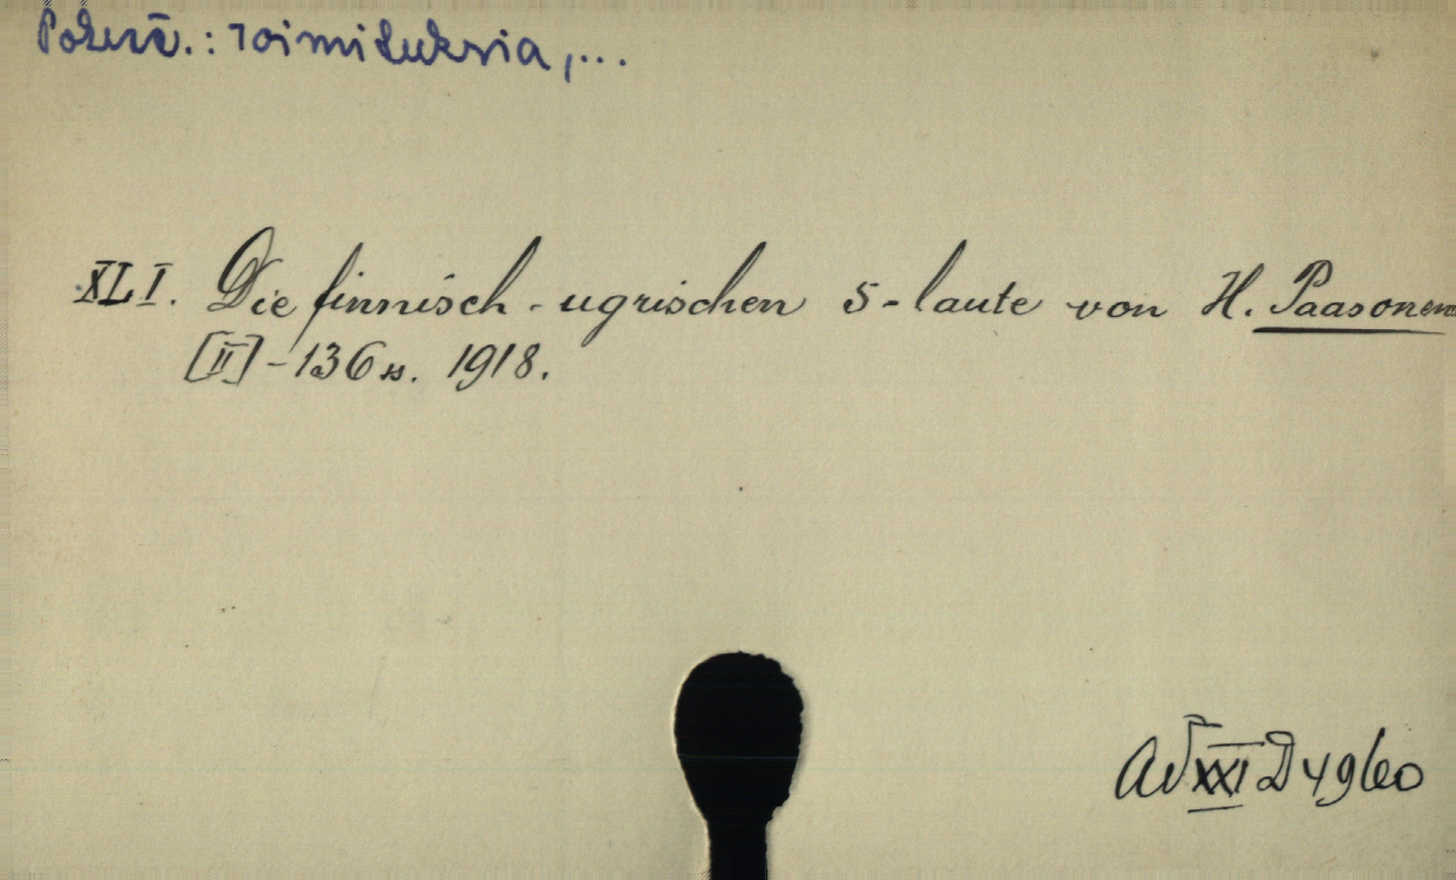 Pokrač.: Toimituksia,...
XLI. Die finnisch-ugrischen s-laute von H. Paasonen
[II]-136 s. 1918.
XXI D 4960